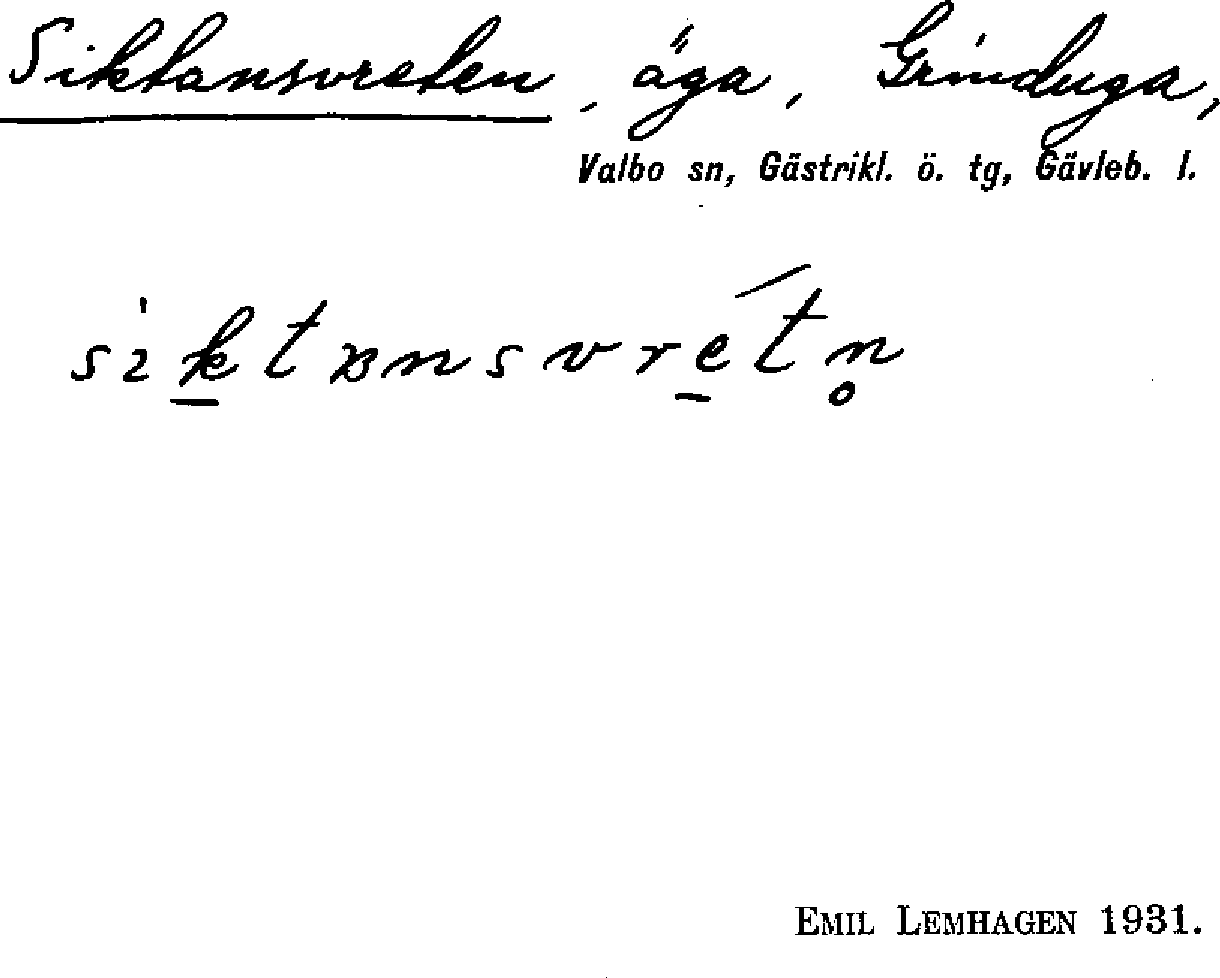 Siktansvreten, äga, Grinduga,
Valbo sn, Gästrikl. ö. tg, Gävleb. l.
sìk̲tɒnsvré̲tn̥
EMIL LEMHAGEN 1931.